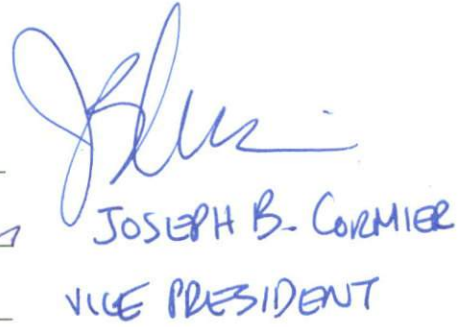 JOSEPH B. CORMIER
VICE PRESIDENT